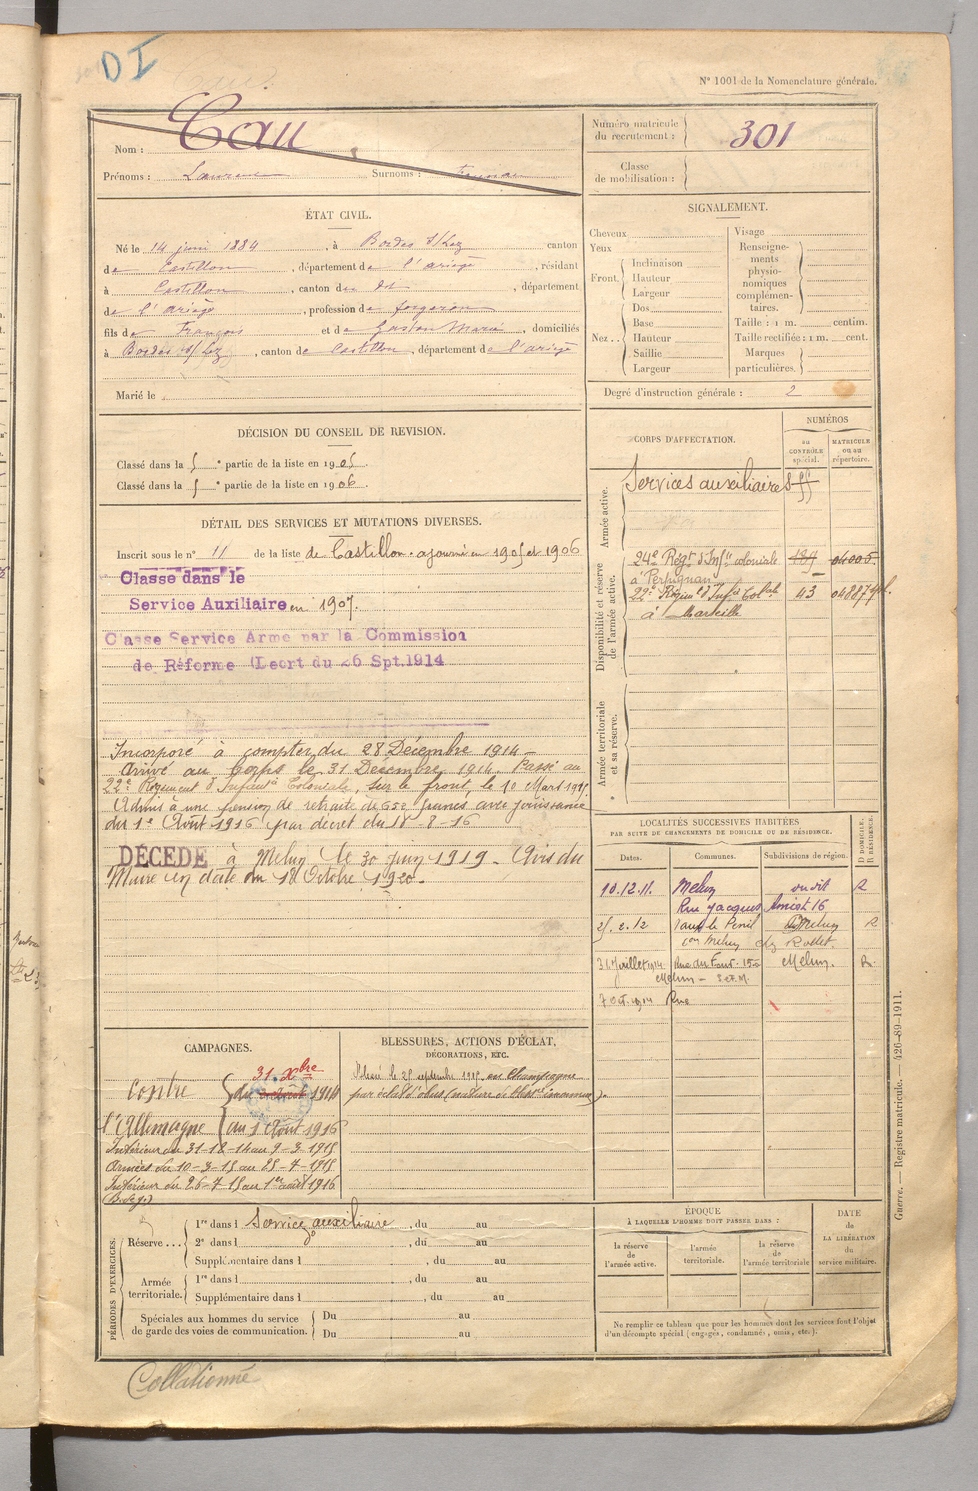 DI
N° 1001 de la Nomenclature générale.
Nom : Cau
Prénoms : Laurent Surnoms :
Numéro matricule du recrutement : 301
Classe de mobilisation :
ÉTAT CIVIL.
Né le 14 juin 1884, à Bordes s/Lez canton
de Castillon, département de l'ariège, résidant
à Castillon, canton du dt, département
de l'ariège, profession de forgeron
fils de François et de Gaston Marie, domiciliés
à Bordes s/Lez, canton de Castillon, département de l'ariège
Marié le
SIGNALEMENT.
Cheveux
Yeux
Front. Inclinaison
Hauteur
Largeur
Nez.. Dos
Base
Hauteur
Saillie
Largeur
Visage
Renseignements physionomiques complémentaires.
Taille : 1 m. centim.
Taille rectifiée : 1 m. cent.
Marques particulières.
Degré d'instruction générale : 2
DÉCISION DU CONSEIL DE REVISION.
Classé dans la 5e partie de la liste en 1905.
Classé dans la 5e partie de la liste en 1906.
DÉTAIL DES SERVICES ET MUTATIONS DIVERSES.
Inscrit sous le n° 11 de la liste de Castillon. ajourné en 1905 et 1906
Classe dans le
Service Auxiliaire en 1907.
Classe Service Arme par la Commission
de Réforme (Decrt du 26 Spt. 1914
Incorporé à compter du 28 Décembre 1914 –
Arrivé au Corps le 31 Décembre 1914. Passé au
22e Régiment d'Infantie Coloniale, sur le front, le 10 Mars 1915.
Admis à une pension de retraite de 650 francs avec jouissance
du 1er Août 1916 par décret du 18-8-16
DÉCÉDÉ à Melun le 30 juin 1919 – Avis du
Maire en date du 18 Octobre 1920.
CORPS D'AFFECTATION.
NUMÉROS
au CONTRÔLE spécial.
MATRICULE ou au répertoire.
Armée active.
Services auxiliaires
Disponibilité et réserve de l'armée active.
24e Régt d'Infie coloniale 04005
à Perpignan
22e Régiment d'Infie Colale 43
à Marseille
Armée territoriale et sa réserve.
LOCALITÉS SUCCESSIVES HABITÉES
PAR SUITE DE CHANGEMENTS DE DOMICILE OU DE RÉSIDENCE.
Dates. Communes. Subdivisions de région. D DOMICILE. R RÉSIDENCE.
10.12.11. Melun R
Rue Jacques Amiot 16
25.2.12 Vaux le Penil Melun R
con Melun chez
31 Juillet 1914 Rue du Four Melun. R.
Melun – S et M.
7 Oct. 1914 Rue
CAMPAGNES.
Contre l'Allemagne
31 Xbre
du 1914
au 1 Août 1916
Intérieur du 31-12-14 au 9-3-1915
Armées du 10-3-15 au 25-7-1915
Intérieur du 26-7-15 au 1er août 1916
BLESSURES, ACTIONS D'ÉCLAT,
DÉCORATIONS, ETC.
Blessé le 25 septembre 1915 en Champagne
par éclat d'obus (nature de bless. inconnue).
PÉRIODES D'EXERCICES.
Réserve... 1re dans l Service auxiliaire, du au
2e dans l, du au
Supplémentaire dans l, du au
Armée territoriale. 1re dans l, du au
Supplémentaire dans l, du au
Spéciales aux hommes du service de garde des voies de communication. Du au
Du au
ÉPOQUE
À LAQUELLE L'HOMME DOIT PASSER DANS :
la réserve de l'armée active.
l'armée territoriale.
la réserve de l'armée territoriale
DATE de LA LIBÉRATION du service militaire.
Ne remplir ce tableau que pour les hommes dont les services font l'objet
d'un décompte spécial (engagés, condamnés, omis, etc.).
Guerre. — Registre matricule. — 426-89-1911.
Collationné